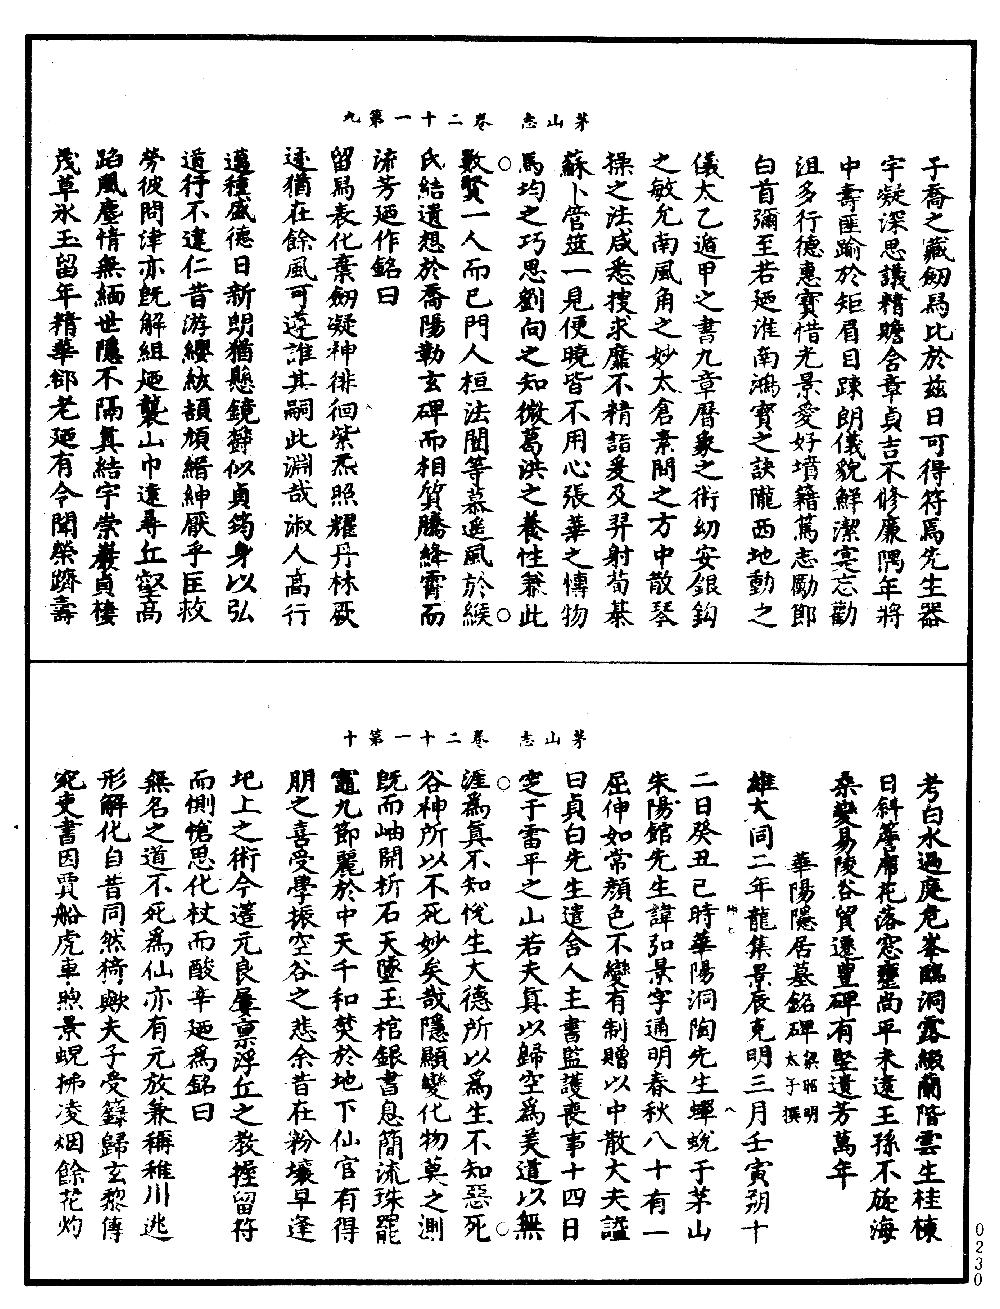 茅山志　卷二十一第九
子喬之藏劒爲比於玆日可得符焉先生器
宇凝深思議精贍含章貞吉不修廉隅年將
中壽匪踰於矩眉目踈朗儀貌鮮潔寔忘勸
沮多行德惠寶惜光景愛好墳籍篤志勵節
白首彌至若廼淮南鴻寳之訣隴西地動之
儀太乙遁甲之書九章曆象之術幼安銀鈎
之敏允南風角之妙太倉素問之方中散琴
操之法咸悉搜求靡不精詣爰及羿射荀棊
蘇卜管筮一見便曉皆不用心張華之慱物
馬均之巧思劉向之知微葛洪之養性兼此
數賢一人而已門人桓法闓等慕遥風於緱
氏結遺想於喬陽勒玄碑而相質騰絳霄而
流芳廼作銘曰
留舄表化棄劒凝神徘徊紫炁照耀丹林厥
迹猶在餘風可遵誰其嗣此淵哉淑人高行
邁種盛德日新朗猶懸鏡馨似貞筠身以弘
道行不違仁昔游纓紱頡頏縉紳厭乎匡救
勞彼問津亦旣解組廼襲山巾遠尋丘壑高
蹈風塵情無緬世隱不隔眞結宇崇巖貞棲
茂草氷玉留年精華郤老廼有令聞榮躋壽
茅山志　卷二十一第十
考白水過庭危峯臨洞露綴蘭階雲生桂棟
日斜簷席花落窓甕尚平未遠王孫不旋海
桑變易陵谷貿遷豐碑有堅遺芳萬年
華陽隱居墓銘碑梁昭明太子撰
維大同二年龍集景辰克明三月壬寅朔十
二日癸丑己時華陽洞陶先生蟬蛻于茅山
朱陽館先生諱弘景字通明春秋八十有一
屈伸如常顔色不變有制贈以中散大夫謚
曰貞白先生遣舍人主書監護喪事十四日
窆于雷平之山若夫真以歸空爲美道以無
涯爲真不知悅生大德所以爲生不知惡死
谷神所以不死妙矣哉隱顯變化物莫之測
旣而岫開析石天墜玉棺銀書息簡流珠罷
竈九節麗於中天千和焚於地下仙官有得
朋之喜受學振空谷之悲余昔在粉壤早逢
圯上之術今濫元良屢禀浮丘之教握留符
而惻愴思化杖而酸辛廼爲銘曰
無名之道不死爲仙亦有元放兼稱稚川逃
形解化自昔同然猗歟夫子受籙歸玄梨傳
宛吏書因賈船虎車煦景蜺拂凌烟餘花灼
0230